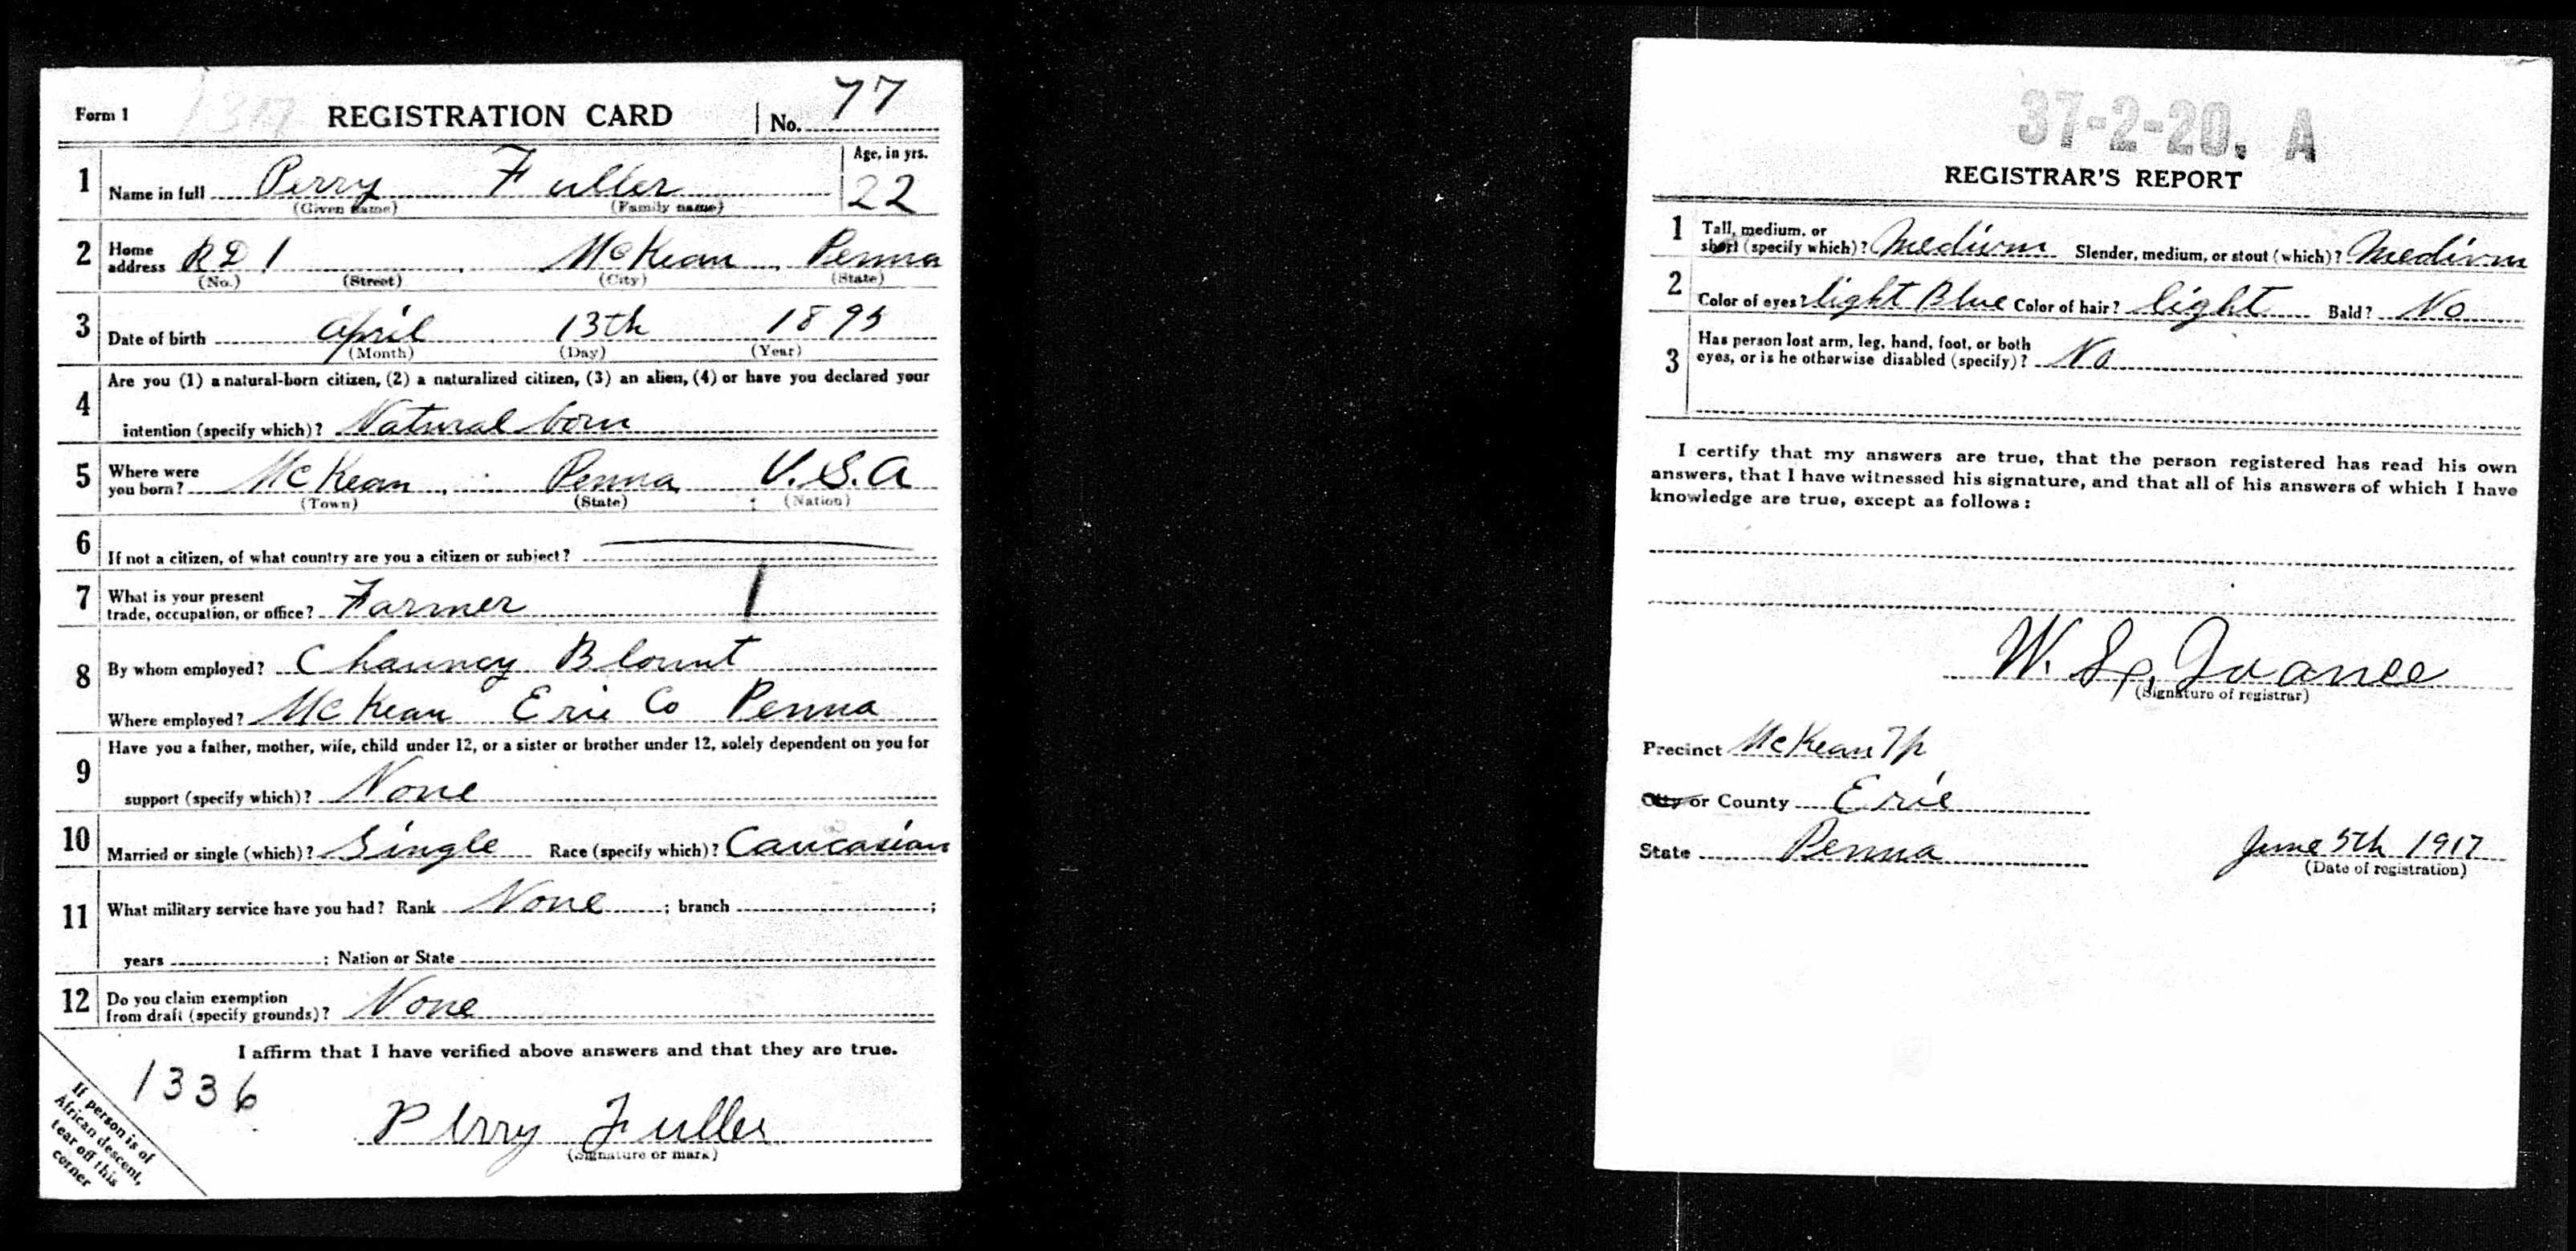 Form 1 REGISTRATION CARD No. 77
1 Name in full Perry Fuller Age, in yrs. 22
(Given name) (Family name)
2 Home address R D 1 McKean Penna
(No.) (Street) (City) (State)
3 Date of birth April 13th 1895
(Month) (Day) (Year)
4 Are you (1) a natural-born citizen, (2) a naturalized citizen, (3) an alien, (4) or have you declared your
intention (specify which)? Natural born
5 Where were you born? McKean Penna U.S.A
(Town) (State) (Nation)
6 If not a citizen, of what country are you a citizen or subject?
7 What is your present
trade, occupation, or office? Farmer
8 By whom employed? Chauncy Blount
Where employed? McKean Erie Co Penna
9 Have you a father, mother, wife, child under 12, or a sister or brother under 12, solely dependent on you for
support (specify which)? None
10 Married or single (which)? Single Race (specify which)? Caucasian
11 What military service have you had? Rank None ; branch ;
years ; Nation or State
12 Do you claim exemption
from draft (specify grounds)? None
I affirm that I have verified above answers and that they are true.
1336
If person is of
African descent,
tear off this
corner
Perry Fuller
(Signature or mark)
37-2-20. A
REGISTRAR'S REPORT
1 Tall, medium, or
short (specify which)? Medium Slender, medium, or stout (which)? Medium
2 Color of eyes? light Blue Color of hair? light Bald? No
3 Has person lost arm, leg, hand, foot, or both
eyes, or is he otherwise disabled (specify)? No
I certify that my answers are true, that the person registered has read his own
answers, that I have witnessed his signature, and that all of his answers of which I have
knowledge are true, except as follows:
W.
(Signature of registrar)
Precinct McKean Tp
City or County Erie
State Penna June 5th 1917
(Date of registration)